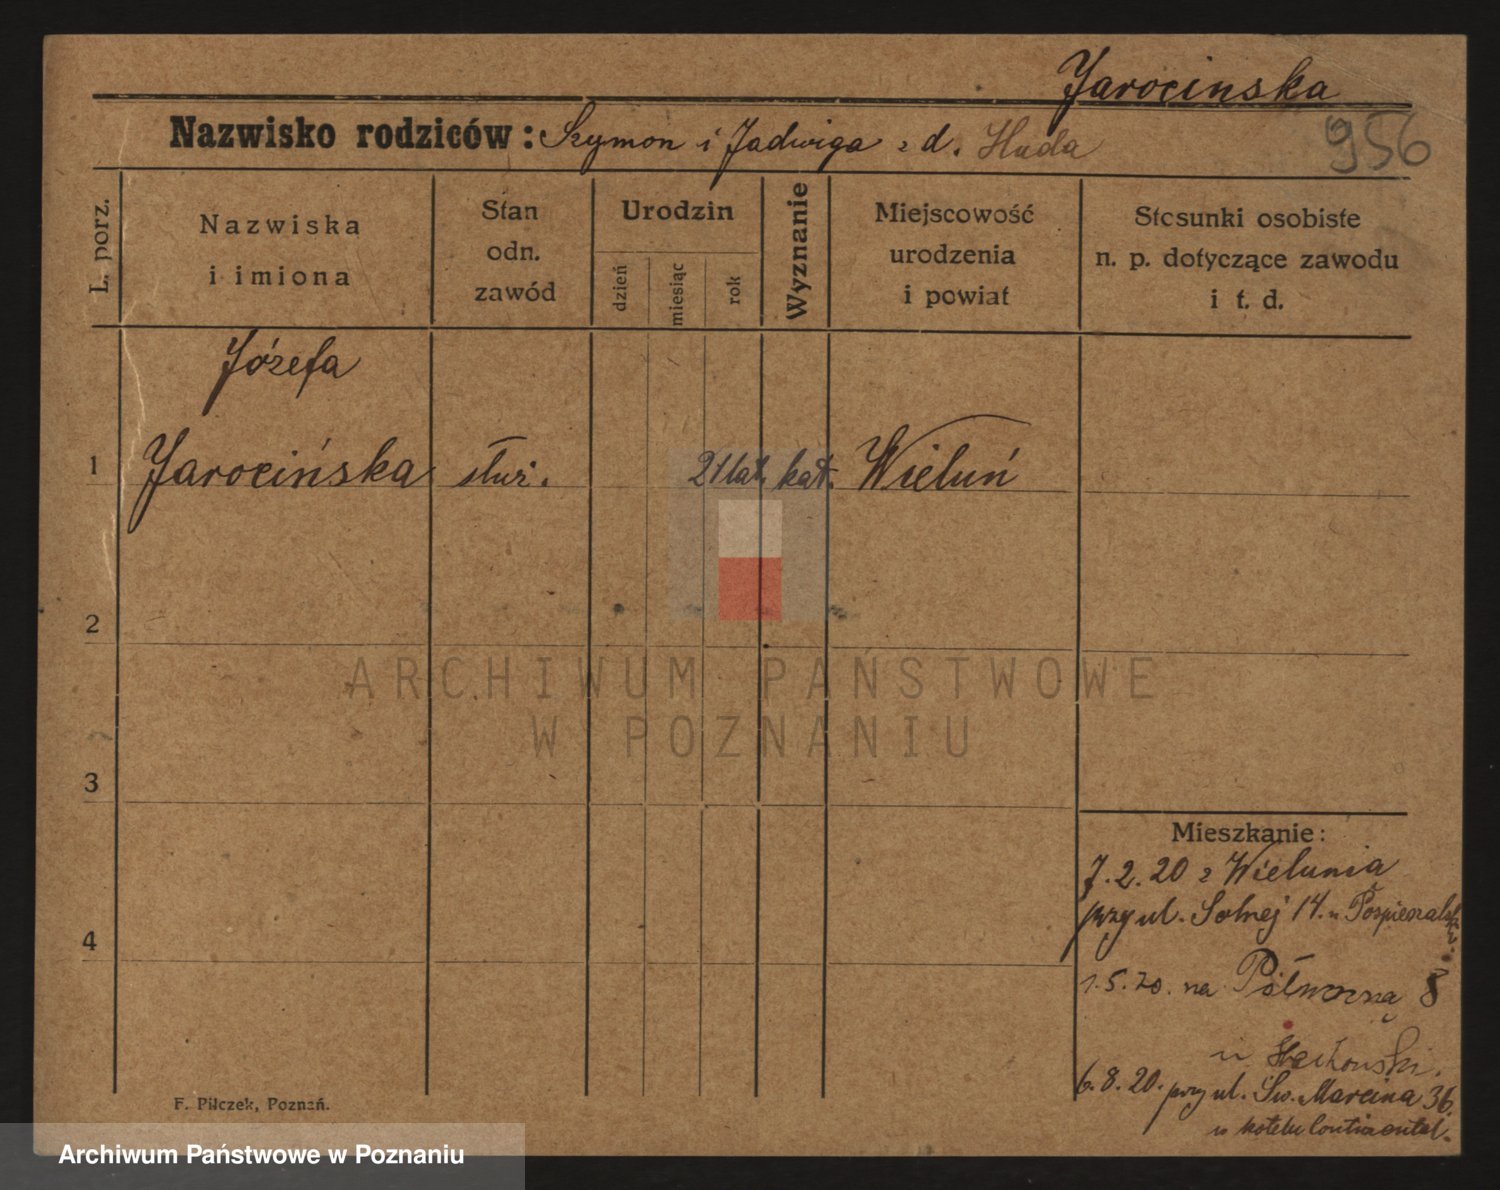 Jarocinska
Nazwisko rodziców: Szymon i Jadwiga z d. Huda
956
L. porz.
Nazwiska
i imiona
Stan
odn.
zawód
Urodzin
dzień
miesiąc
rok
Wyznanie
Miejscowość
urodzenia
i powiat
Stosunki osobiste
n. p. dotyczące zawodu
i t. d.
Józefa
1 Jarocińska służ. 21 lat. kat. Wieluń
2
3
4
ARCHIWUM PAŃSTWOWE
W POZNANIU
Mieszkanie:
7.2.20 z Wielunia
przy ul. Solnej 14. u Pospieszalski.
1.5.20. na Półwiejską 8
u
6.8.20. przy ul. Św. Marcina 36.
w hotelu Continental.
F. Pilczek, Poznań.
Archiwum Państwowe w Poznaniu